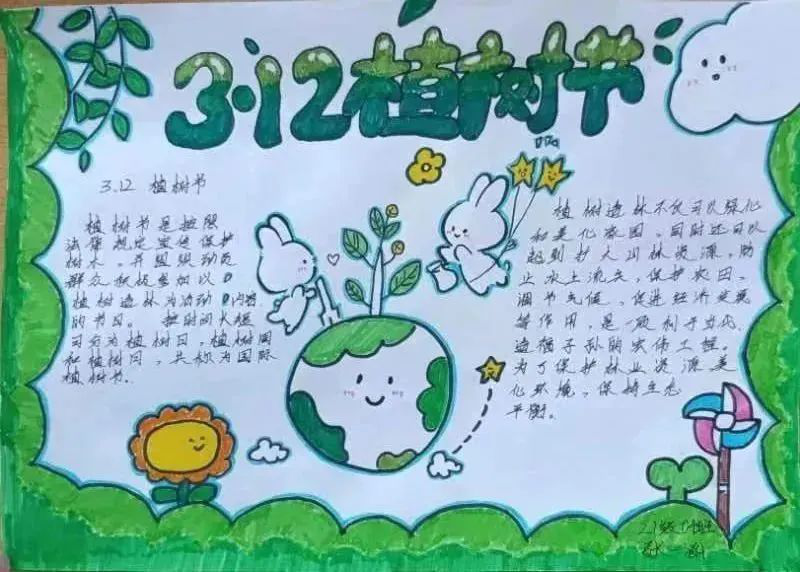 3.12植树节
3.12 植树节
植树节是按照
法律规定宣传保护
树木,并组织动员
群众积极参加以
植树造林为活动内容
的节日。按时间长短
可分为植树日,植树周
和植树月,共称为国际
植树节。
植树造林不仅可以绿化
和美化家园,同时还可以
起到扩大山林资源,防
止水土流失,保护农田,
调节气候,促进经济发展
等作用,是一项利于当代,
造福子孙的宏伟工程。
为了保护林业资源,美
化环境,保持生态
平衡。
21级